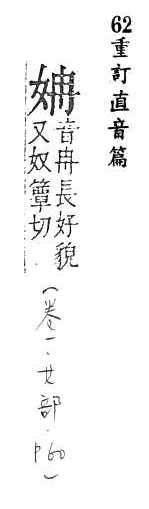 62重訂直音篇
姌
音冉長好貌
又奴簟切
(卷一·女部·p60)